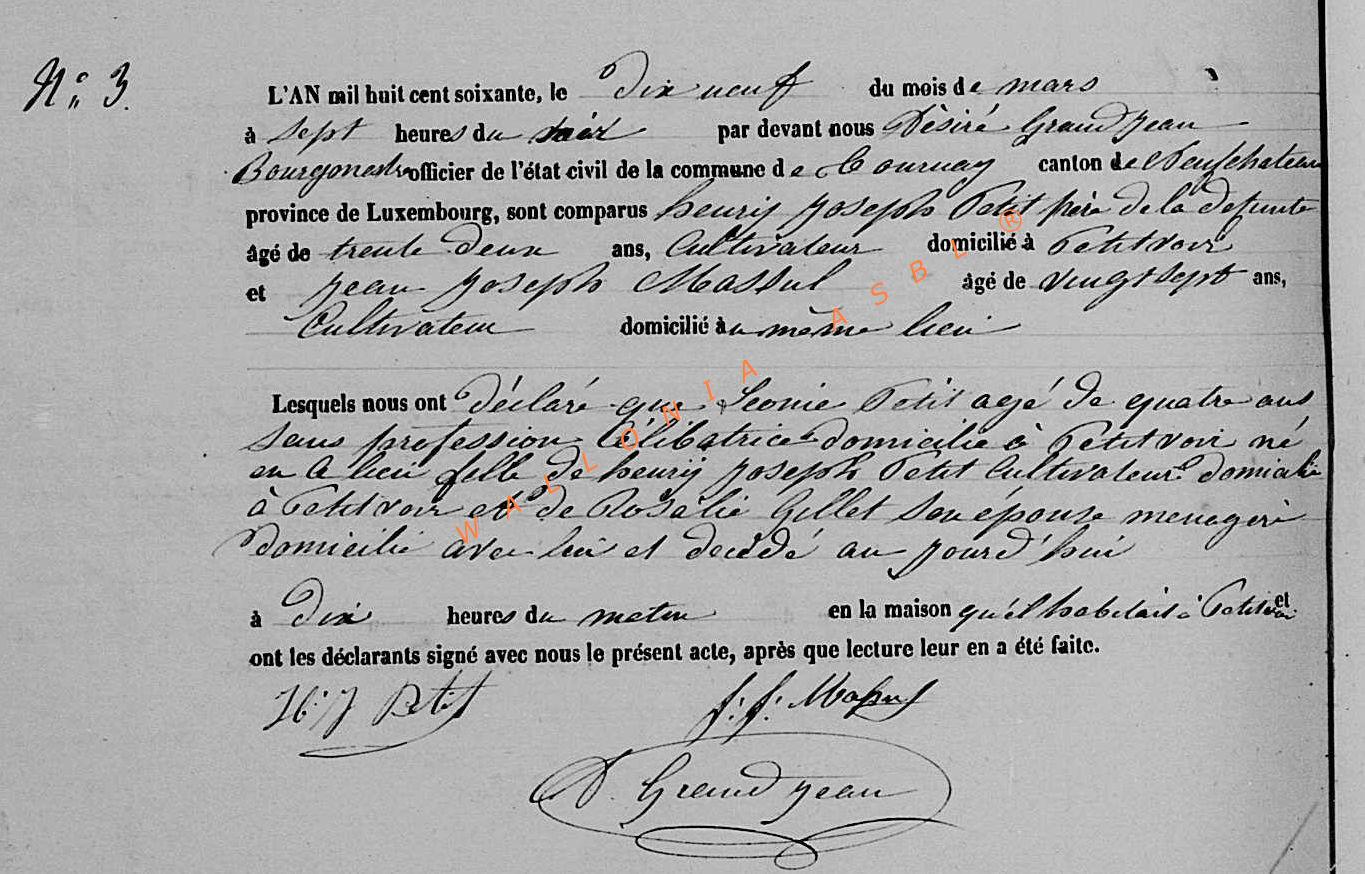 N° 3.
L'AN mil huit cent soixante, le Dix neuf du mois de mars
à Sept heures du soir par devant nous Dèsiré Grandjean
Bourgmestre officier de l'état civil de la commune de Tournay canton de Neufchateau
province de Luxembourg, sont comparus henrij joseph Petit père de la defunte
âgé de trente deux ans, Cultivateur domicilié à Petitvoir
et jean joseph Massul âgé de vingt sept ans,
Cultivateur domicilié au même lieu
Lesquels nous ont déclaré que Leonie Petit agé de quatre ans
Sans profession Célibatrice domicilie à Petitvoir né
en ce lieu fille de henrij joseph Petit Cultivateur domicilie
à Petitvoir et de Rosalie Gillet son épouse menagere
domicilié avec lui et decedé au jourd'hui
à Dix heures du matin en la maison qu'il habitait à Petitvoir et
ont les déclarants signé avec nous le présent acte, après que lecture leur en a été faite.
H. J Petit J. J. Massul
D. Grandjean
WALLONIA ASBL ®